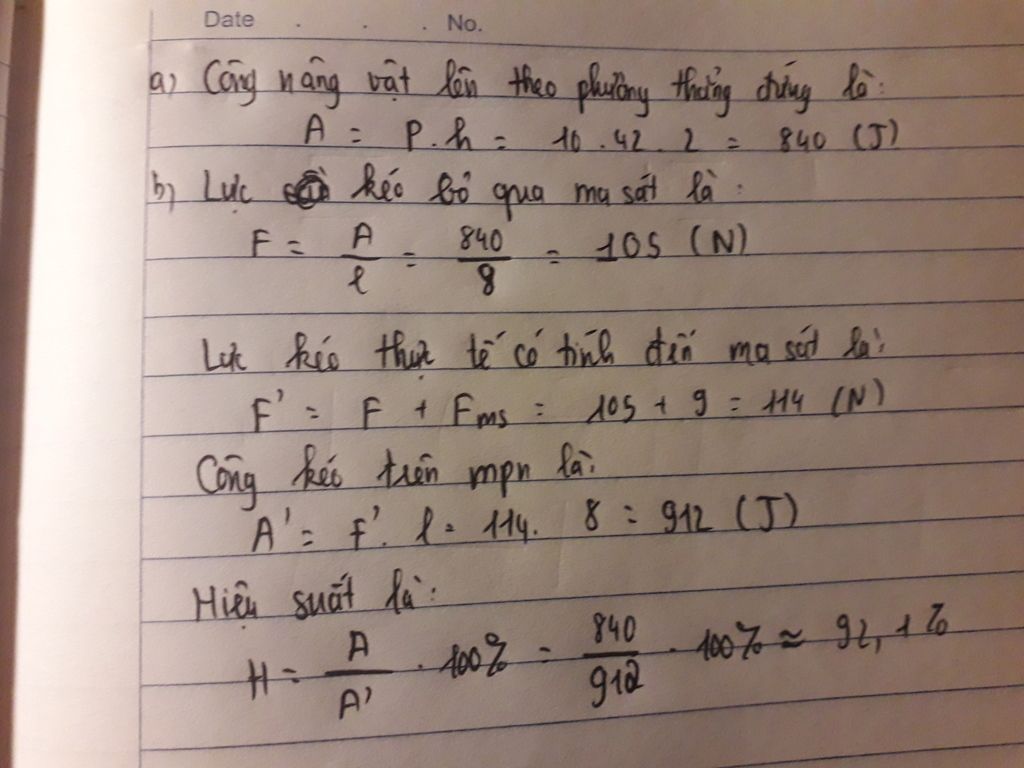 Date . . . No.
a) Công nâng vật lên theo phương thẳng đứng là:
A = P.h = 10.42.2 = 840 (J)
b) Lực kéo bỏ qua ma sát là:
F = A/l = 840/8 = 105 (N)
Lực kéo thực tế có tính đến ma sát là:
F' = F + Fms = 105 + 9 = 114 (N)
Công kéo trên mpn là:
A' = F'. l = 114. 8 = 912 (J)
Hiệu suất là:
H = A/A' . 100% = 840/912 . 100% ≈ 92,1%